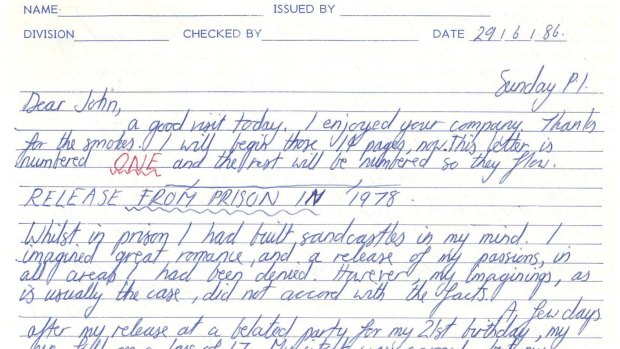 NAME ISSUED BY
DIVISION CHECKED BY DATE 29/6/86.
Sunday P.1.
Dear John,
a good visit today. I enjoyed your company. Thanks
for the smokes. I will begin those 14 pages, now. This letter is
numbered ONE and the rest will be numbered so they flow.
RELEASE FROM PRISON IN 1978.
Whilst in prison I had built sandcastles in my mind. I
imagined great romance, and a release of my passions, in
all areas I had been denied. However, my imaginings, as
is usually the case, did not accord with the facts.
A few days
after my release at a belated party for my 21st birthday, my